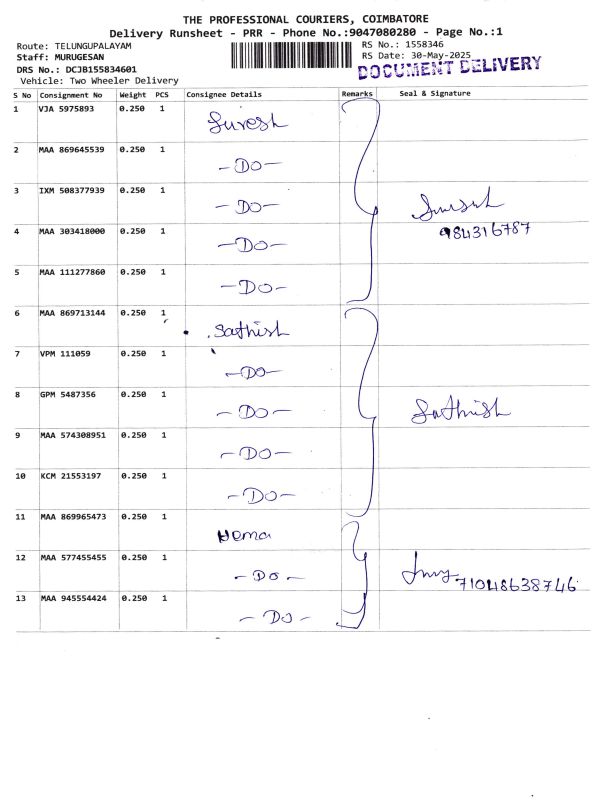 THE PROFESSIONAL COURIERS, COIMBATORE
Delivery Runsheet - PRR - Phone No.:9047080280 - Page No.:1
Route: TELUNGUPALAYAM
RS No.: 1558346
Staff: MURUGESAN
RS Date: 30-May-2025
DRS No.: DCJB155834601
DOCUMENT DELIVERY
Vehicle: Two Wheeler Delivery
S No Consignment No Weight PCS Consignee Details Remarks Seal & Signature
1 VJA 5975893 0.250 1 Suresh
2 MAA 869645539 0.250 1 - Do -
3 IXM 508377939 0.250 1 - Do -
Suresh
4 MAA 303418000 0.250 1 - Do -
984316787
5 MAA 111277860 0.250 1 - Do -
6 MAA 869713144 0.250 1 Sathish
7 VPM 111059 0.250 1 - Do -
8 GPM 5487356 0.250 1 - Do - Sathish
9 MAA 574308951 0.250 1 - Do -
10 KCM 21553197 0.250 1 - Do -
11 MAA 869965473 0.250 1 Hema
12 MAA 577455455 0.250 1 - Do - 71048638746
13 MAA 945554424 0.250 1 - Do -